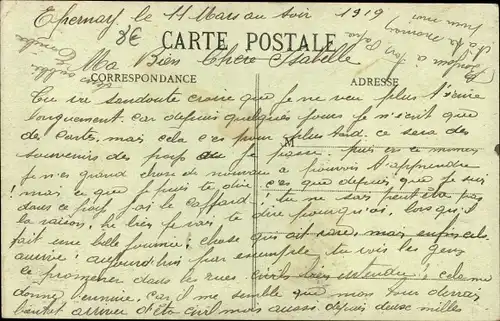 Epernay, le 11 Mars au soir 1919
8€
CARTE POSTALE
Ma Bien Chère Isabelle
CORRESPONDANCE
ADRESSE
Tu va sandoute croire que je ne veu plus t'écrire
longuement, car depuis quelques jours je n'écrit que
des cartes, mais cela c'es pour plus tard, ce sera des
M
souvenirs des pays ou je passe, puis en ce moment
je n'es grand chose de nouveau a pouvoir t'apprendre
mais ce que je puis te dire c'es que depuis que je suis
dans ce pays j'ai le caffard, tu ne sais peut être pas
la raison, he bien je vais te dire pourquoi, lorsqu'il
fait une belle journée, chose qui ait rare, mais enfin cela
arrive, aujourd'hui par exemple tu vois les gens
ce promener dans les rues civils bien entendu, cela me
donne l'ennuie, car il me semble que mon tour devrait
bientôt arriver d'être civil mois aussi depuis deux milles